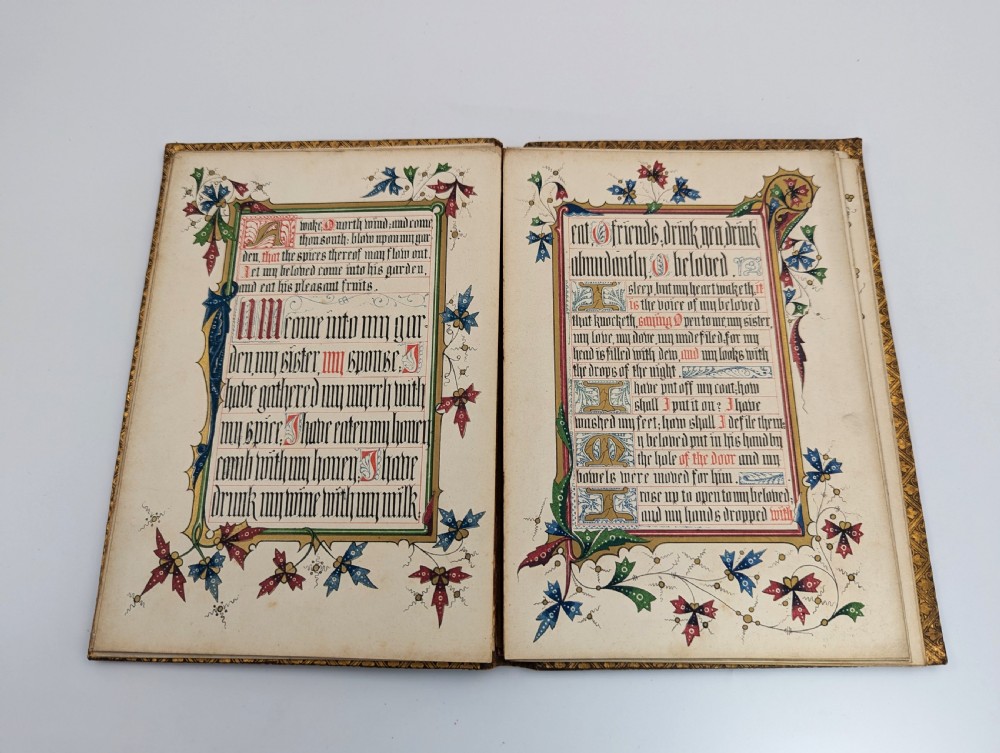 Awake, O north wind: and come
thou south: blow upon my gar
den, that the spices thereof may flow out.
Let my beloved come into his garden,
and eat his pleasant fruits.
I AM come into my gar-
den, my sister, my spouse: I
have gathered my myrrh with
my spice: I have eaten my honey
comb with my honey: I have
drunk my wine with my milk:
eat O friends, drink yea, drink
abundantly, O beloved.
I sleep, but my heart waketh, it
is the voice of my beloved
that knocketh, saying Open to me, my sister,
my love, my dove, my undefiled, for my
head is filled with dew, and my locks with
the drops of the night.
I have put off my coat: how
shall I put it on? I have
washed my feet; how shall I defile them
My beloved put in his hand by
the hole of the door and my
bowels were moved for him
I rose up to open to my beloved;
and my hands dropped with